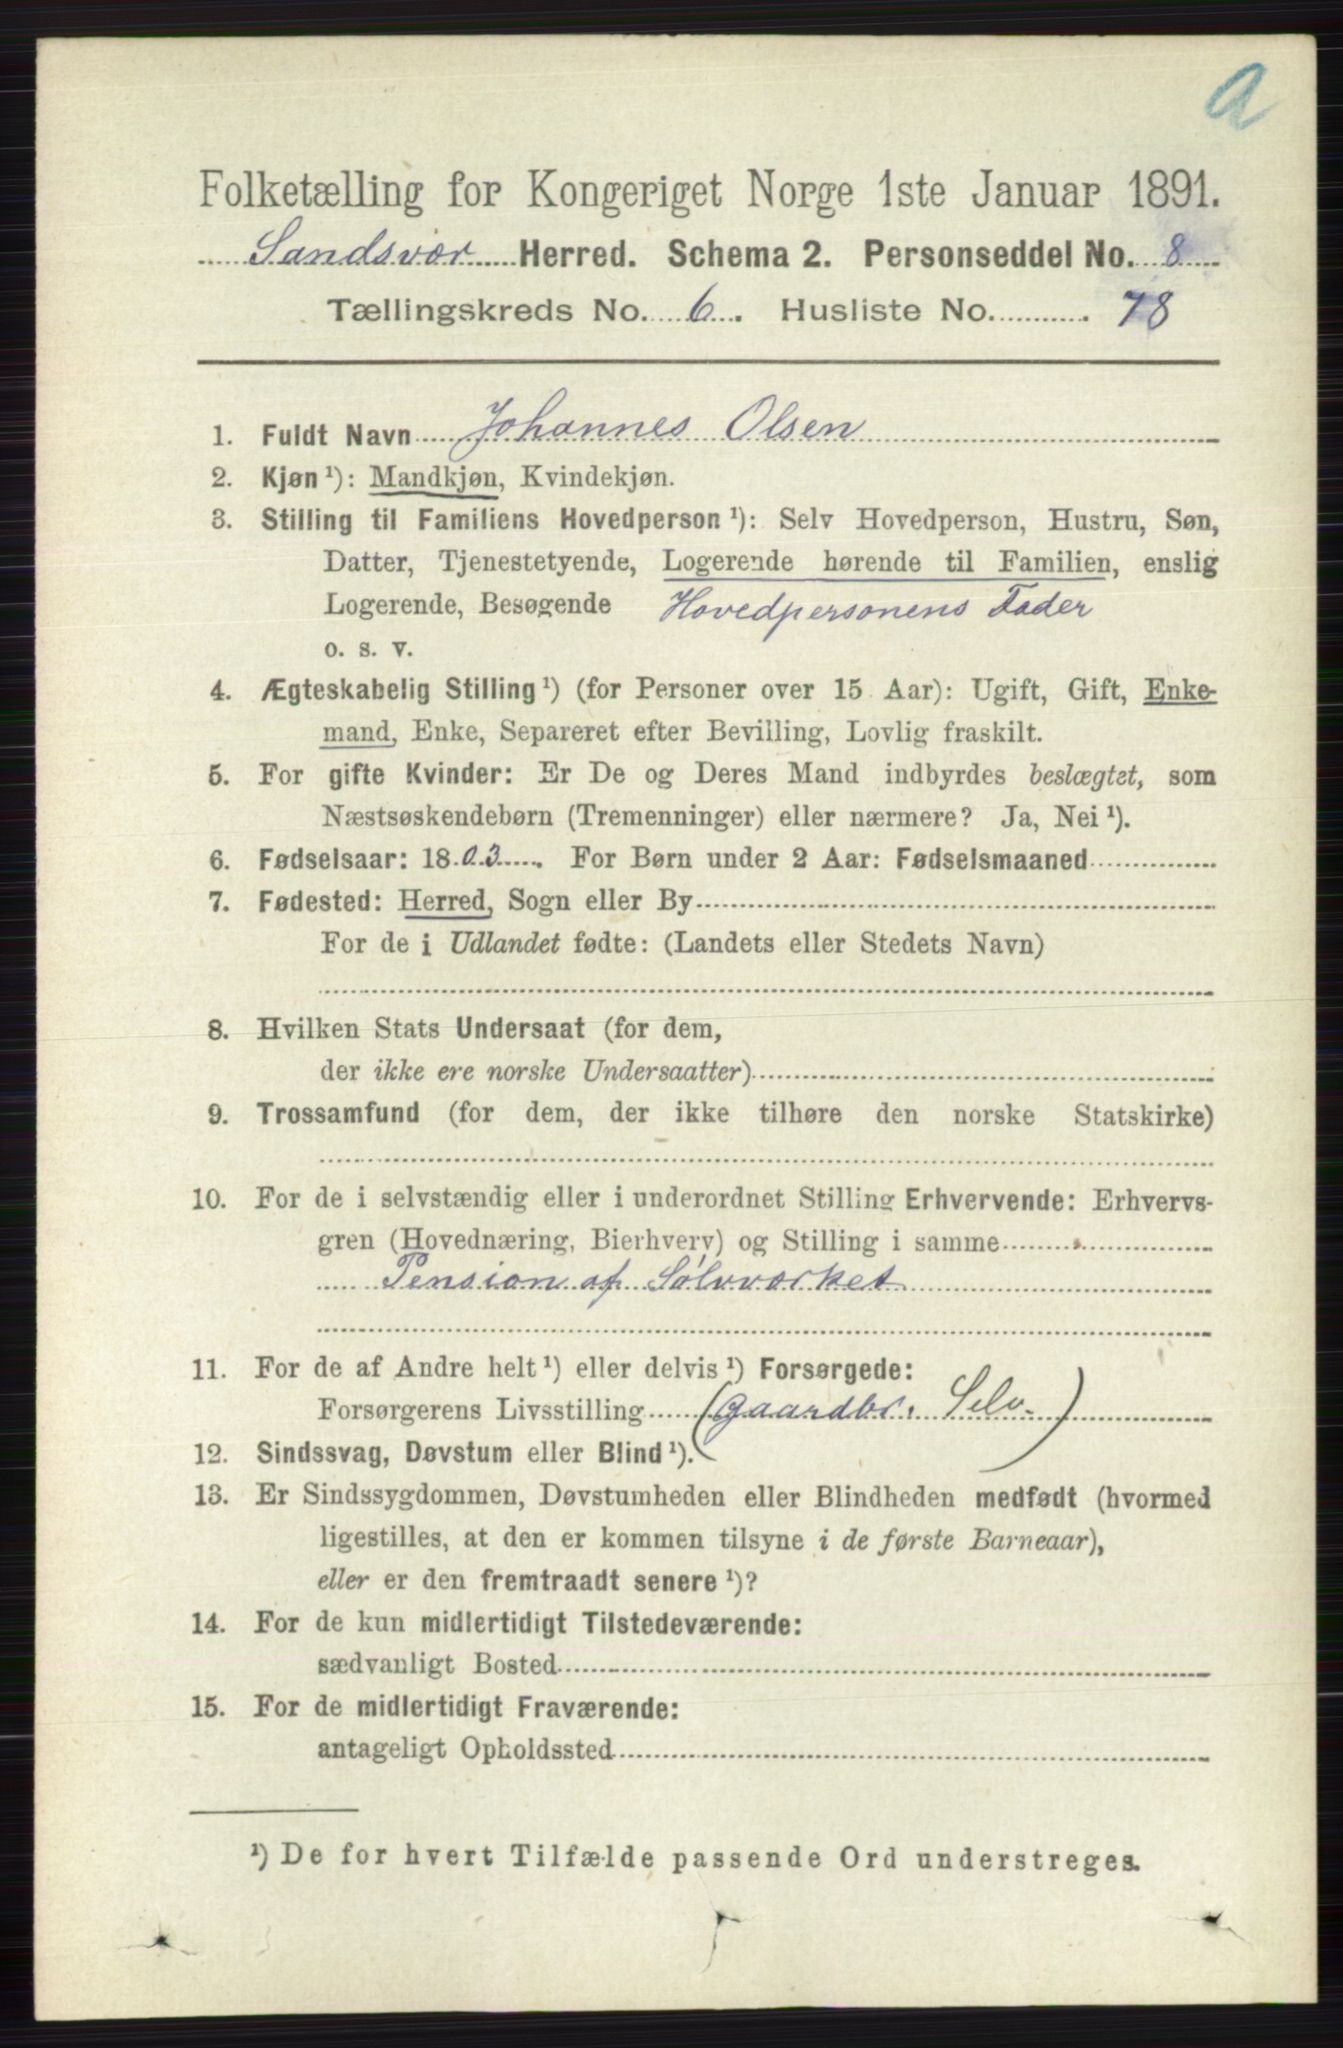 a
Folketælling for Kongeriget Norge 1ste Januar 1891.
Sandsvær Herred. Schema 2. Personseddel No. 8
Tællingskreds No. 6. Husliste No. 78
1. Fuldt Navn Johannes Olsen
2. Kjøn¹): Mandkjøn, Kvindekjøn.
3. Stilling til Familiens Hovedperson¹): Selv Hovedperson, Hustru, Søn,
Datter, Tjenestetyende, Logerende hørende til Familien, enslig
Logerende, Besøgende Hovedpersonens Fader
o. s. v.
4. Ægteskabelig Stilling¹) (for Personer over 15 Aar): Ugift, Gift, Enke-
mand, Enke, Separeret efter Bevilling, Lovlig fraskilt.
5. For gifte Kvinder: Er De og Deres Mand indbyrdes beslægtet, som
Næstsøskendebørn (Tremenninger) eller nærmere? Ja, Nei¹).
6. Fødselsaar: 1803. For Børn under 2 Aar: Fødselsmaaned
7. Fødested: Herred, Sogn eller By
For de i Udlandet fødte: (Landets eller Stedets Navn)
8. Hvilken Stats Undersaat (for dem,
der ikke ere norske Undersaatter)
9. Trossamfund (for dem, der ikke tilhøre den norske Statskirke)
10. For de i selvstændig eller i underordnet Stilling Erhvervende: Erhvervs-
gren (Hovednæring, Bierhverv) og Stilling i samme
Pension af Sølvværket
11. For de af Andre helt¹) eller delvis¹) Forsørgede:
Forsørgerens Livsstilling (Gaardbr. Selv.)
12. Sindssvag, Døvstum eller Blind¹).
13. Er Sindssygdommen, Døvstumheden eller Blindheden medfødt (hvormed
ligestilles, at den er kommen tilsyne i de første Barneaar),
eller er den fremtraadt senere¹)?
14. For de kun midlertidigt Tilstedeværende:
sædvanligt Bosted
15. For de midlertidigt Fraværende:
antageligt Opholdssted
¹) De for hvert Tilfælde passende Ord understreges.